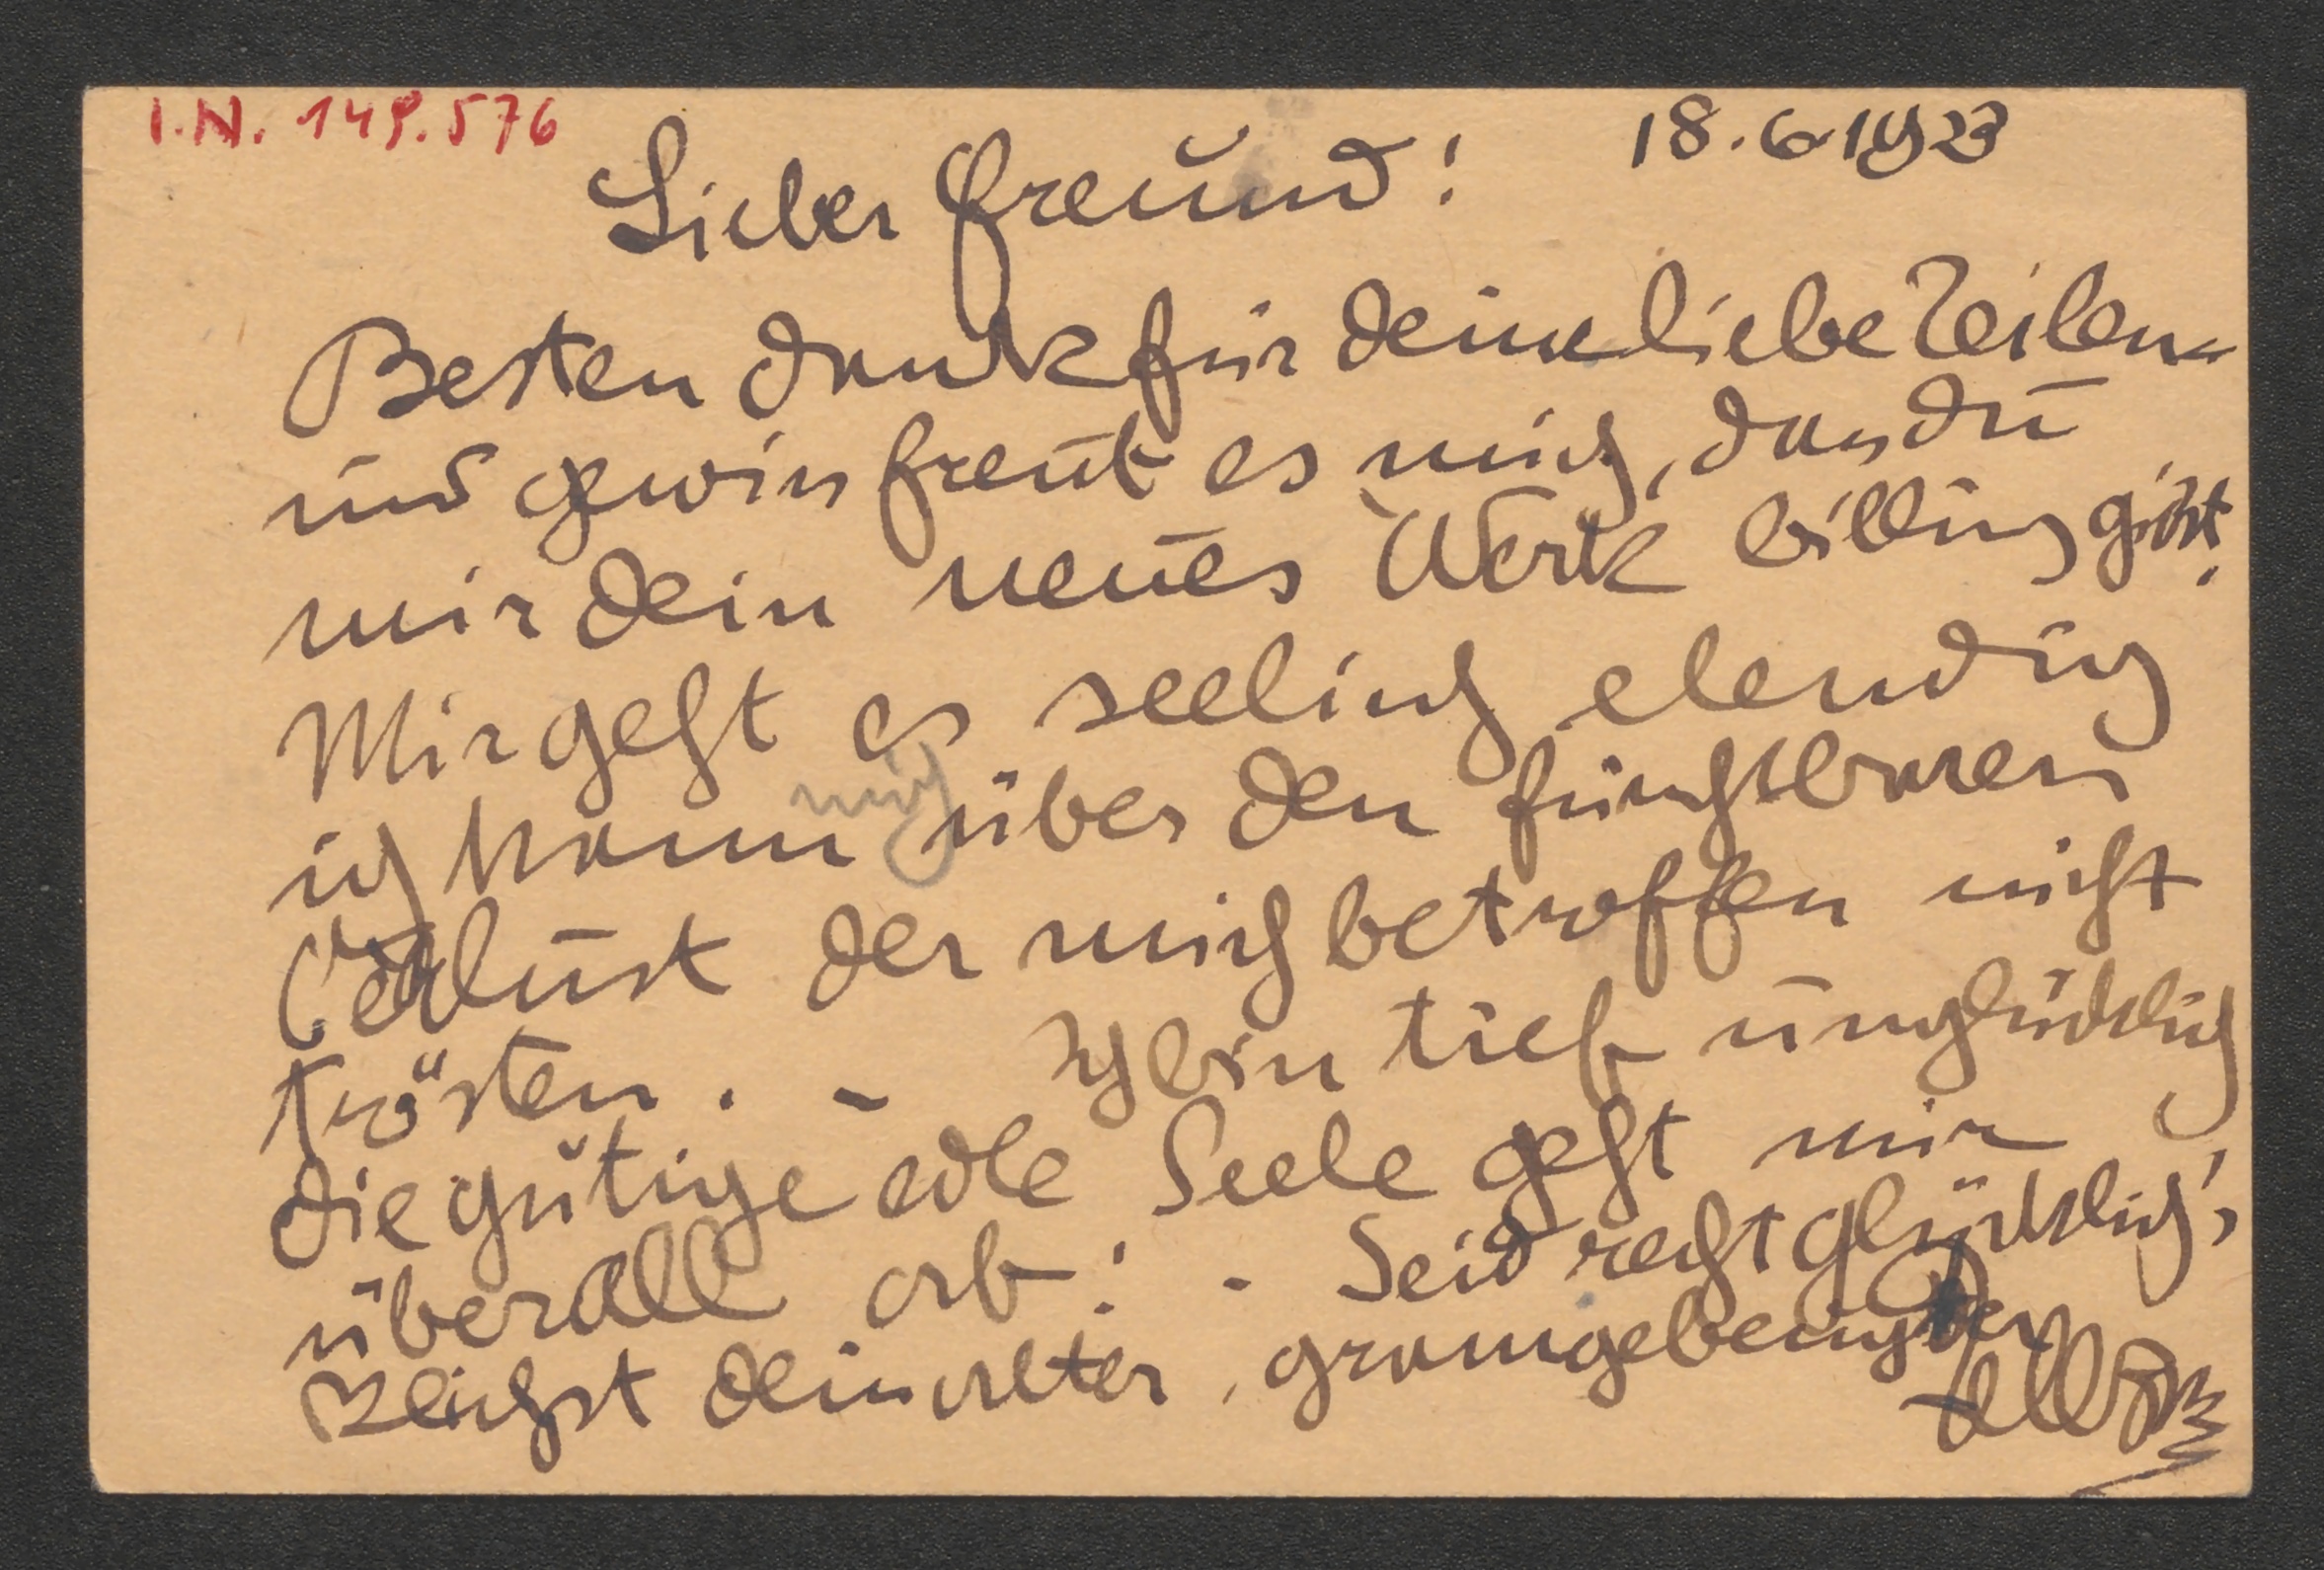 I.N. 149.576
18.6 1923
Lieber Freund!
Besten Dank für deine liebe Zeilen
und gewiss freut es mich, dass du
mir dein neues Werk billig gibst.
Mir geht es seelisch elendig
ich kann mich über den furchtbaren
Verlust der mich betroffen nicht
trösten. - Ich bin tief unglücklich
die gütige edle Seele geht mir
überall ab! - Seid recht glücklich!
dein alter, gramgebeugter